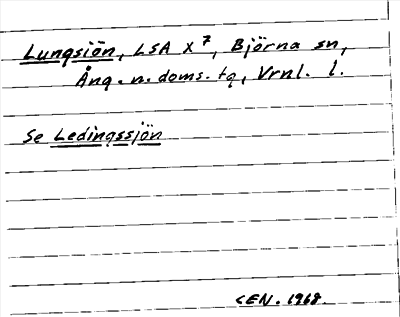 Lungsjön, LSA X 7, Björna sn,
Ång. n. doms. tg, Vrnl. l.
Se Ledingssjön
CEN. 1968.